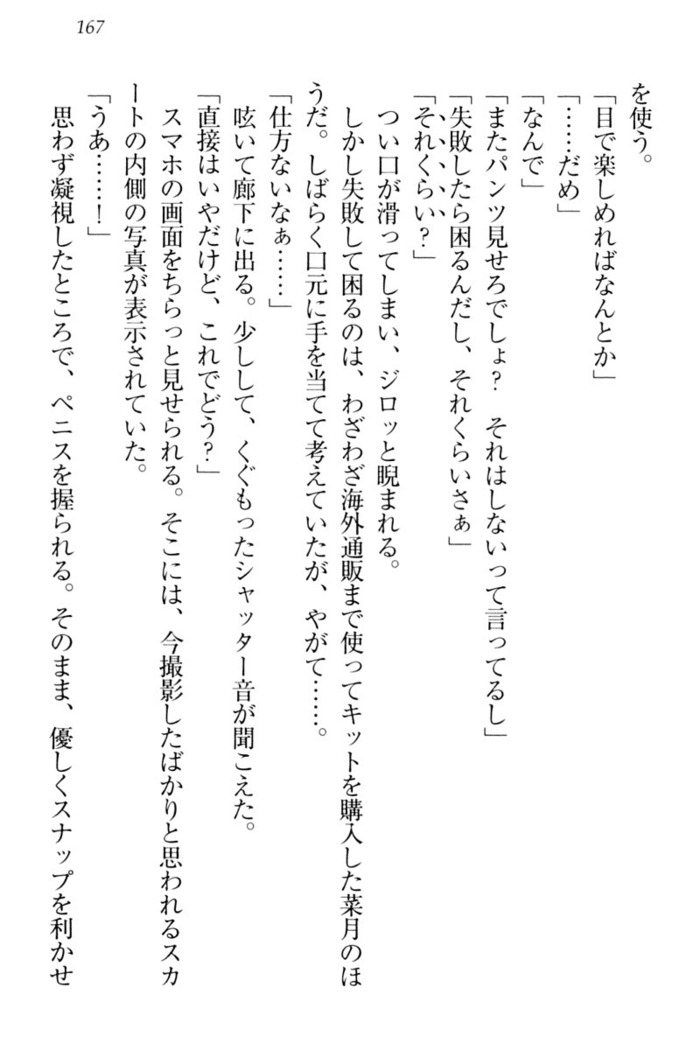 167
を使う。
「目で楽しめればなんとか」
「……だめ」
「なんで」
「またパンツ見せろでしょ？　それはしないって言ってるし」
「失敗したら困るんだし、それくらいさぁ」
「それくらい？」
つい口が滑ってしまい、ジロッと睨まれる。
しかし失敗して困るのは、わざわざ海外通販まで使ってキットを購入した菜月のほ
うだ。しばらく口元に手を当てて考えていたが、やがて……。
「仕方ないなぁ……」
呟いて廊下に出る。少しして、くぐもったシャッター音が聞こえた。
「直接はいやだけど、これでどう？」
スマホの画面をちらっと見せられる。そこには、今撮影したばかりと思われるスカ
ートの内側の写真が表示されていた。
「うあ……！」
思わず凝視したところで、ペニスを握られる。そのまま、優しくスナップを利かせ